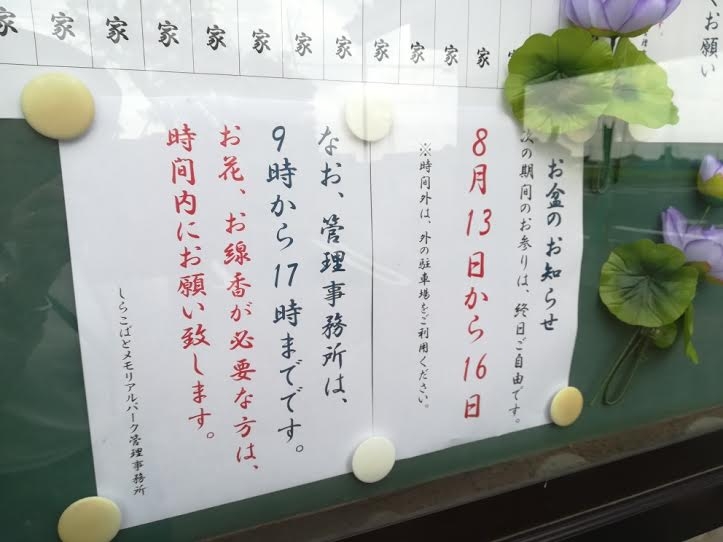 お盆のお知らせ
次の期間のお参りは、終日ご自由です。
8月13日から16日
※時間外は、外の駐車場をご利用ください。
なお、管理事務所は、
9時から17時までです。
お花、お線香が必要な方は、
時間内にお願い致します。
しらこばとメモリアルパーク管理事務所
家 家 家 家 家 家 家 家 家 家 家
くお願い